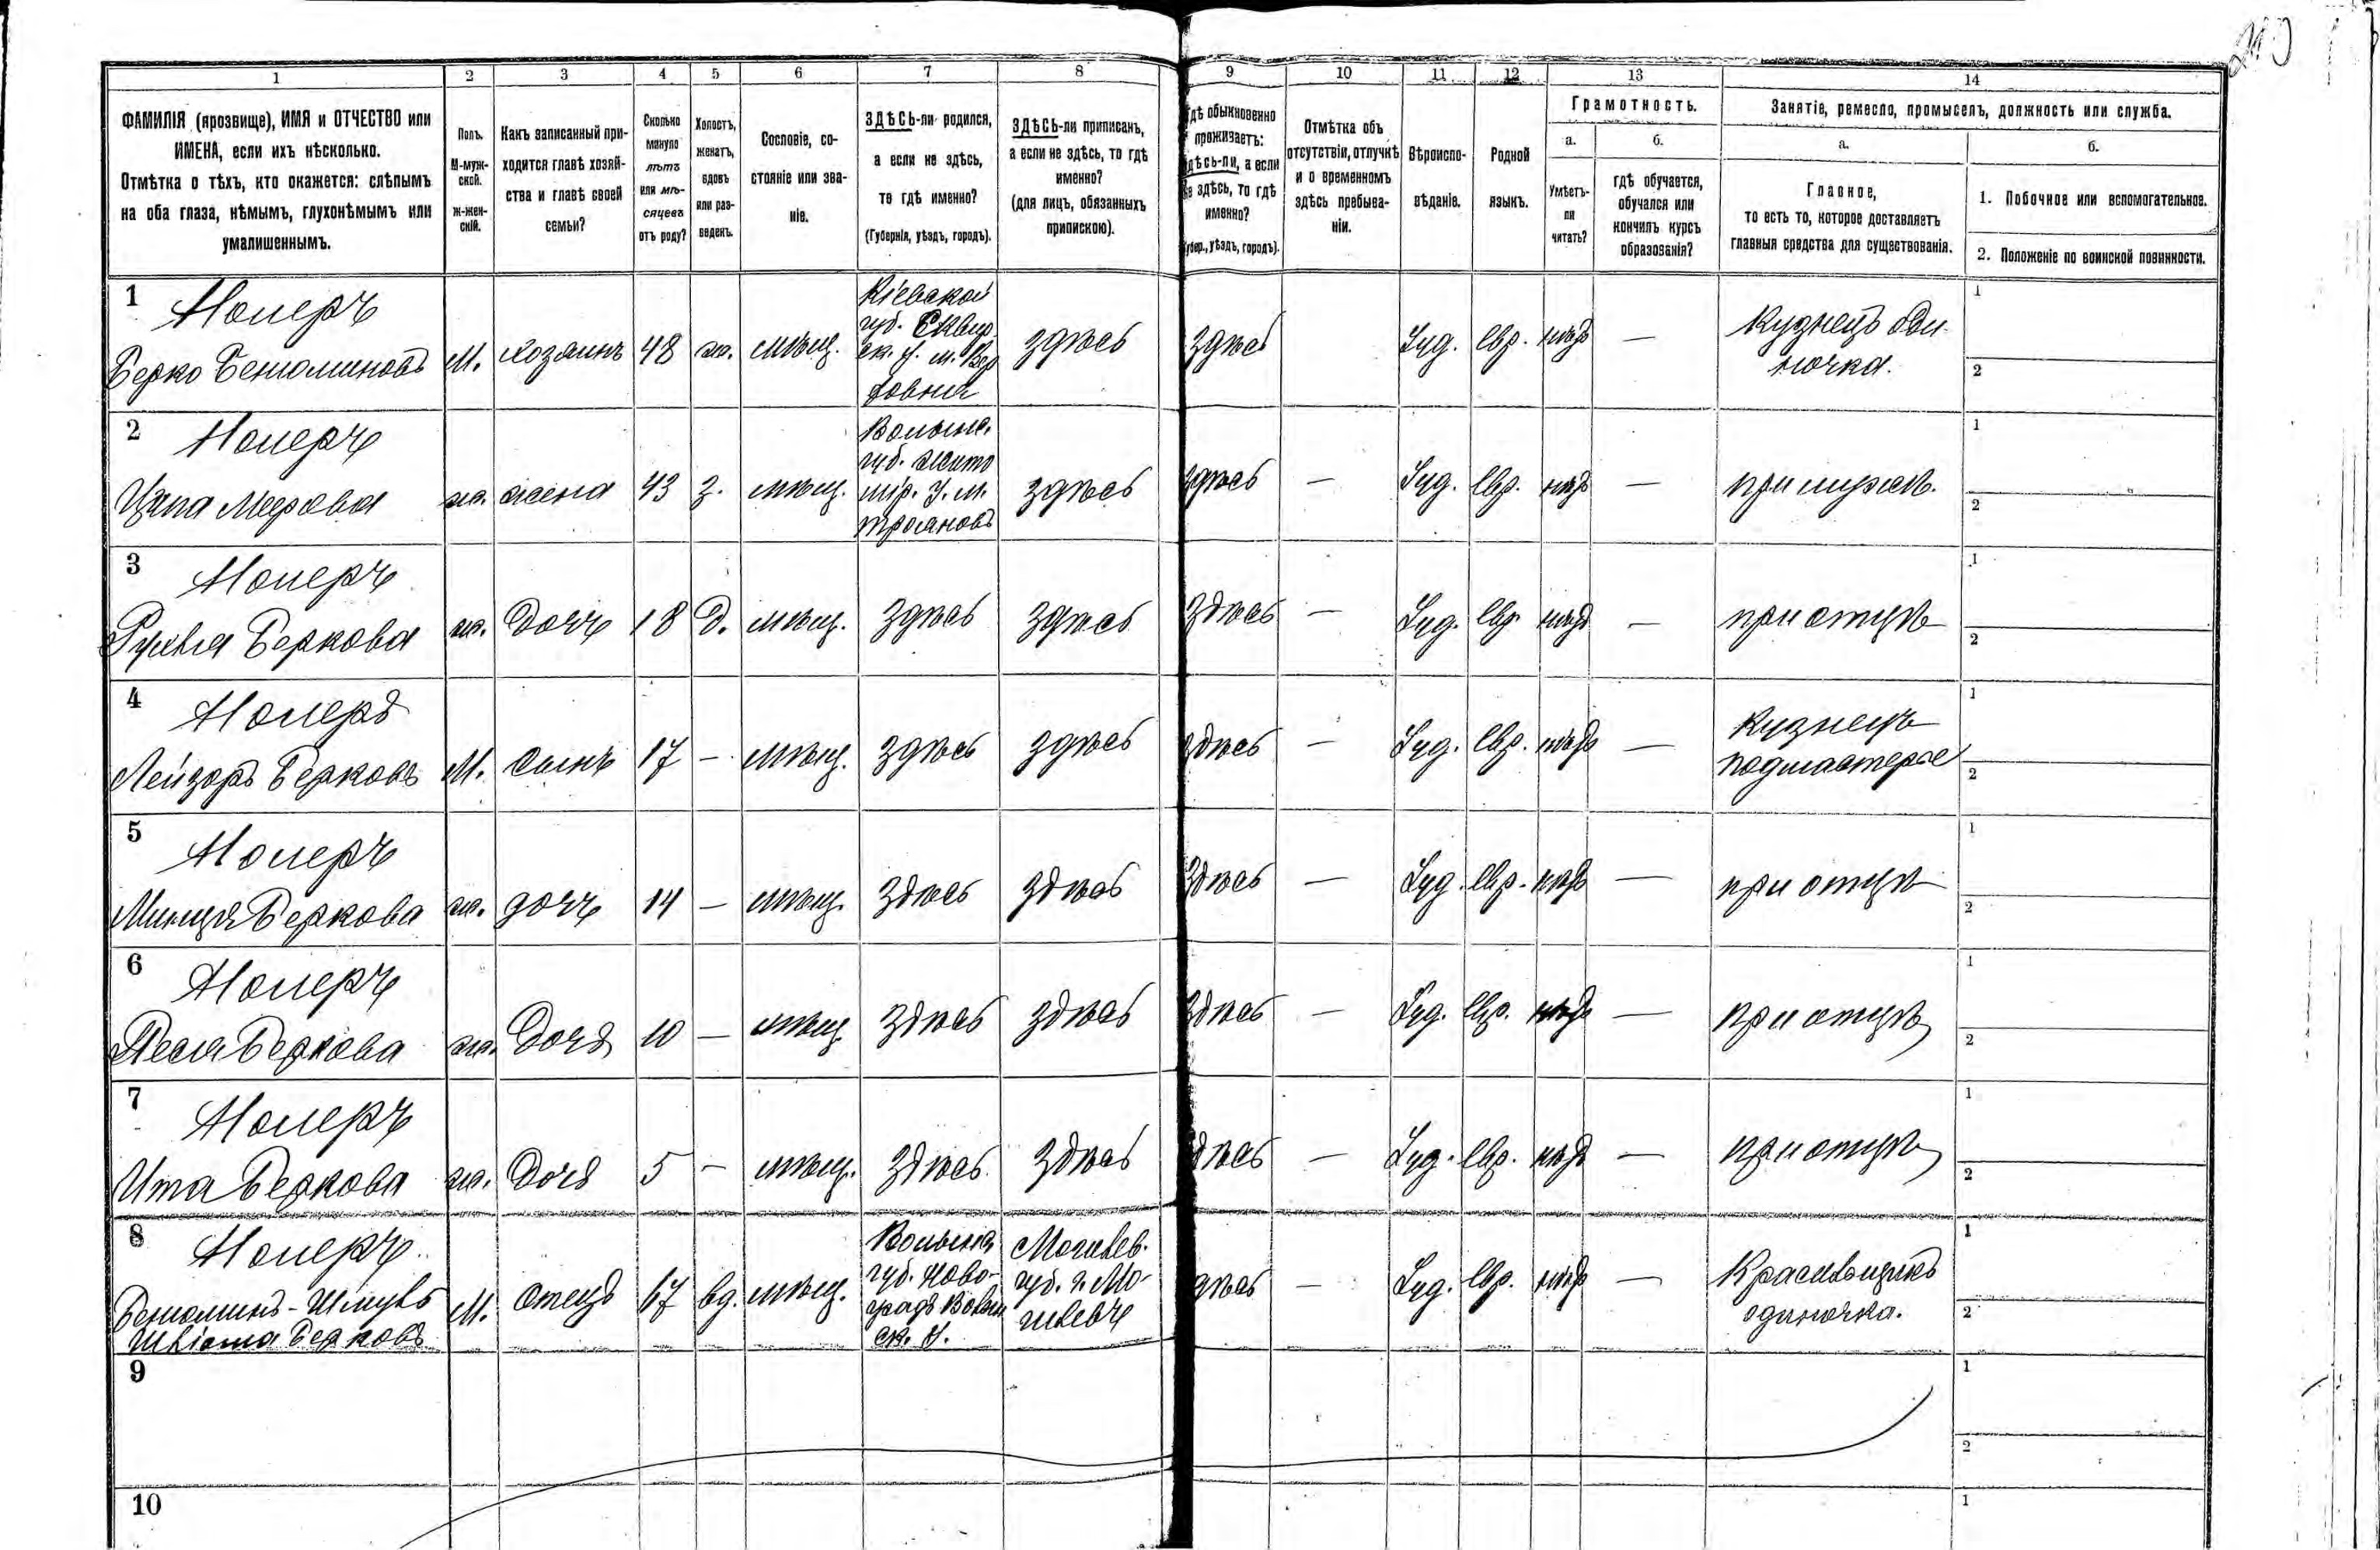 1 2 3 4 5 6 7 8 9 10 11 12 13 14
ФАМИЛІЯ (прозвище), ИМЯ и ОТЧЕСТВО или
ИМЕНА, если ихъ нѣсколько.
Отмѣтка о тѣхъ, кто окажется: слѣпымъ
на оба глаза, нѣмымъ, глухонѣмымъ или
умалишеннымъ.
Полъ.
М-муж-
ской.
Ж-жен-
скій.
Какъ записанный при-
ходится главѣ хозяй-
ства и главѣ своей
семьи?
Сколько
минуло
лѣтъ
или мѣ-
сяцевъ
отъ роду?
Холостъ,
женатъ,
вдовъ
или раз-
веденъ.
Сословіе, со-
стояніе или зва-
ніе.
ЗДѢСЬ-ли родился,
а если не здѣсь,
то гдѣ именно?
(Губернія, уѣздъ, городъ).
ЗДѢСЬ-ли приписанъ,
а если не здѣсь, то гдѣ
именно?
(для лицъ, обязанныхъ
припискою).
гдѣ обыкновенно
проживаетъ:
здѣсь-ли, а если
не здѣсь, то гдѣ
именно?
(Губер., уѣздъ, городъ).
Отмѣтка объ
отсутствіи, отлучкѣ
и о временномъ
здѣсь пребыва-
ніи.
Вѣроиспо-
вѣданіе.
Родной
языкъ.
Грамотность.
а.
Умѣетъ-
ли
читать?
б.
гдѣ обучается,
обучался или
кончилъ курсъ
образованія?
Занятіе, ремесло, промыселъ, должность или служба.
а.
Главное,
то есть то, которое доставляетъ
главныя средства для существованія.
б.
1. Побочное или вспомогательное.
2. Положеніе по воинской повинности.
1
Берко Бенюминовъ
М. хозяинъ 48 ж. мѣщ.
Кіевской
губ. Сквир
ск. у. м.
здѣсь здѣсь Іуд. Евр. нѣтъ —
кузнецъ оди-
ночка.
1
2
2
Меерова
ж. жена 43 з. мѣщ.
Волынс.
губ. Жито
мір. у. м.
Трояновъ
здѣсь здѣсь — Іуд. Евр. нѣтъ —
при мужѣ.
1
2
3
Беркова
ж. дочь 18 д. мѣщ. здѣсь здѣсь здѣсь — Іуд. Евр. нѣтъ —
при отцѣ
1
2
4
Лейзоръ Берковъ
М. сынъ 17 — мѣщ. здѣсь здѣсь здѣсь — Іуд. Евр. нѣтъ —
кузнецъ
подмастерье
1
2
5
Минця Беркова
ж. дочь 14 — мѣщ. здѣсь здѣсь здѣсь — Іуд. Евр. нѣтъ —
при отцѣ
1
2
6
Песя Беркова
ж. дочь 10 — мѣщ. здѣсь здѣсь здѣсь — Іуд. Евр. нѣтъ —
при отцѣ
1
2
7
Ита Беркова
ж. дочь 5 — мѣщ. здѣсь здѣсь здѣсь — Іуд. Евр. нѣтъ —
при отцѣ
1
2
8
Бенюминъ-Шмуль
Берковъ
М. отецъ 67 вд. мѣщ.
Волынс.
губ. Ново-
градъ Волын
ск. у.
Могилев.
губ. г. Мо-
гилевъ
здѣсь — Іуд. Евр. нѣтъ —
Красильщикъ
одиночка.
1
2
9
1
2
10
1